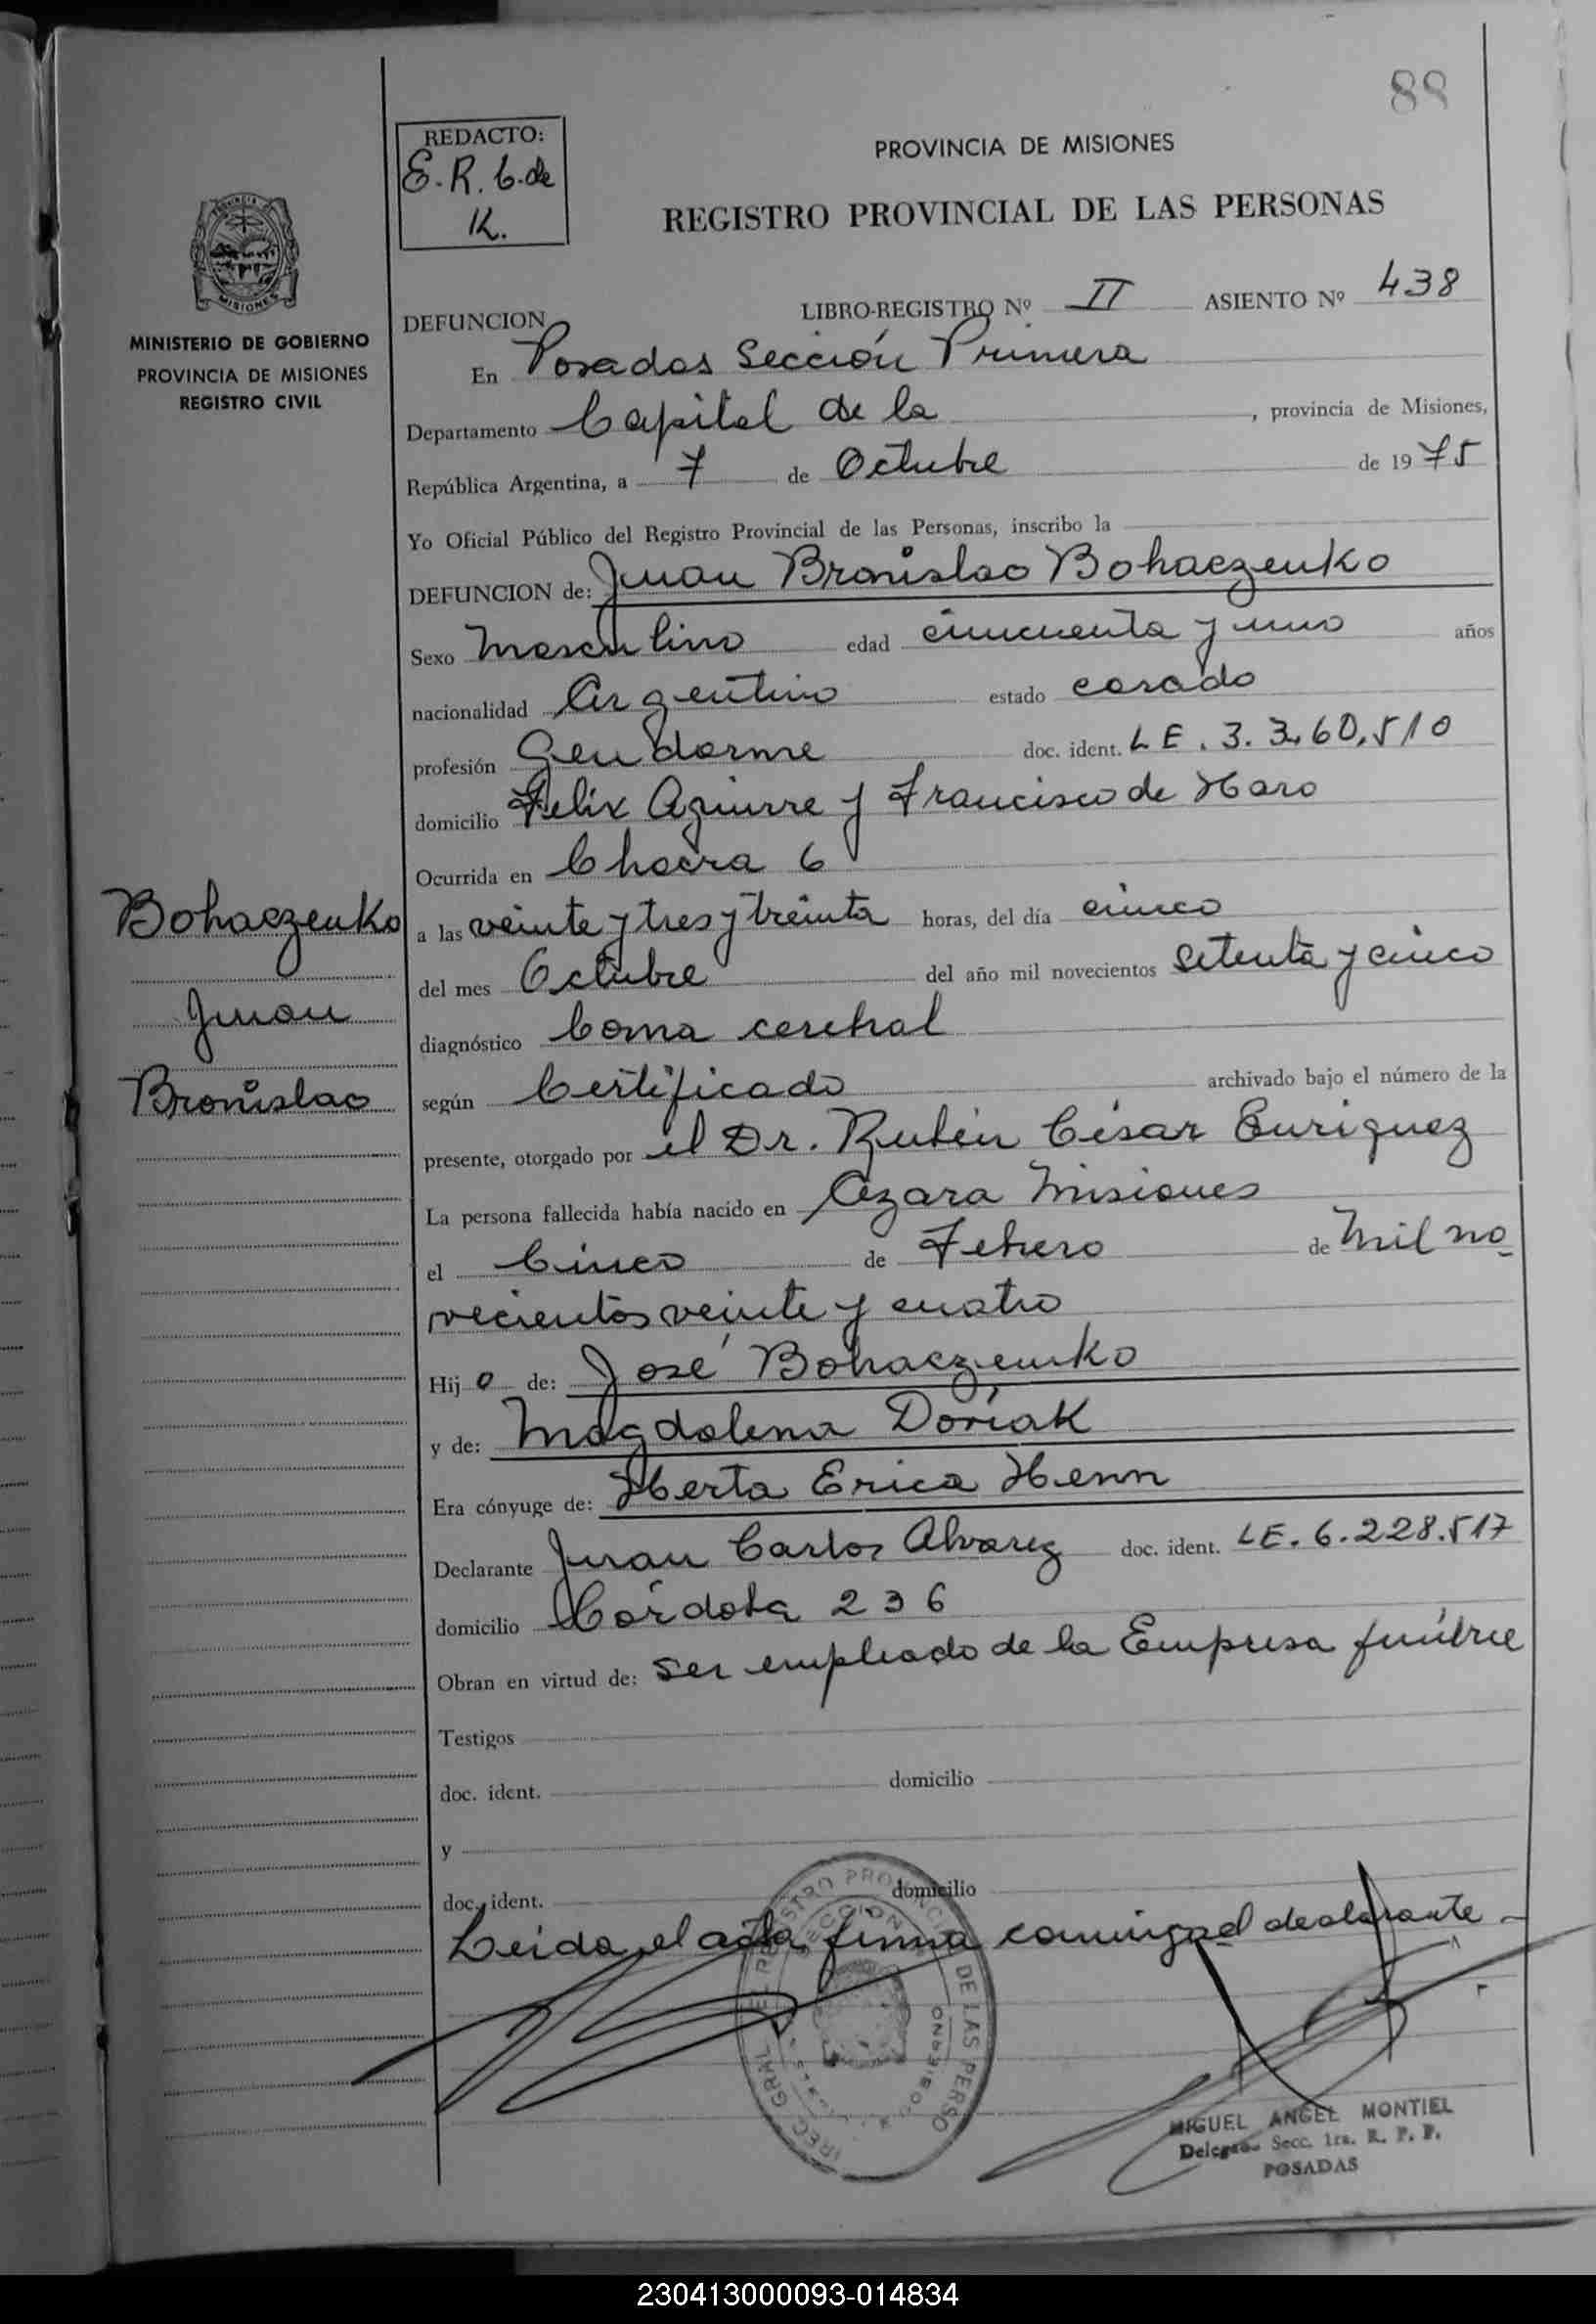 88
REDACTO:
E. R. C. de
K.
PROVINCIA DE MISIONES
REGISTRO PROVINCIAL DE LAS PERSONAS
MISIONES
MINISTERIO DE GOBIERNO
PROVINCIA DE MISIONES
REGISTRO CIVIL
DEFUNCION LIBRO-REGISTRO Nº II ASIENTO Nº 438
En Posadas Sección Primera
Departamento Capital de la , provincia de Misiones,
República Argentina, a 7 de Octubre de 1975
Yo Oficial Público del Registro Provincial de las Personas, inscribo la
DEFUNCION de: Juan Bronislao Bohaczenko
Sexo Masculino edad cincuenta y uno años
nacionalidad Argentino estado casado
profesión Gendarme doc. ident. LE. 3.360.510
domicilio Felix Aguirre y Francisco de Haro
Ocurrida en Chacra 6
Bohaczenko
Juan
Bronislao
a las veinte y tres y treinta horas, del día cinco
del mes Octubre del año mil novecientos setenta y cinco
diagnóstico Coma cerebral
según Certificado archivado bajo el número de la
presente, otorgado por el Dr. Rubén César Enriquez
La persona fallecida había nacido en Azara Misiones
el Cinco de Febrero de Mil no
vecientos veinte y cuatro
Hijo de: José Bohaczenko
y de: Magdalena Doriak
Era cónyuge de: Herta Erica Henn
Declarante Juan Carlos Alvarez doc. ident. LE. 6.228.517
domicilio Córdoba 236
Obran en virtud de: ser empleado de la Empresa fúnebre
Testigos
doc. ident. domicilio
y
doc. ident. domicilio
Leida el acta firma conmigo el declarante
MIGUEL ANGEL MONTIEL
Delegado Secc. 1ra. R. P. P.
POSADAS
230413000093-014834